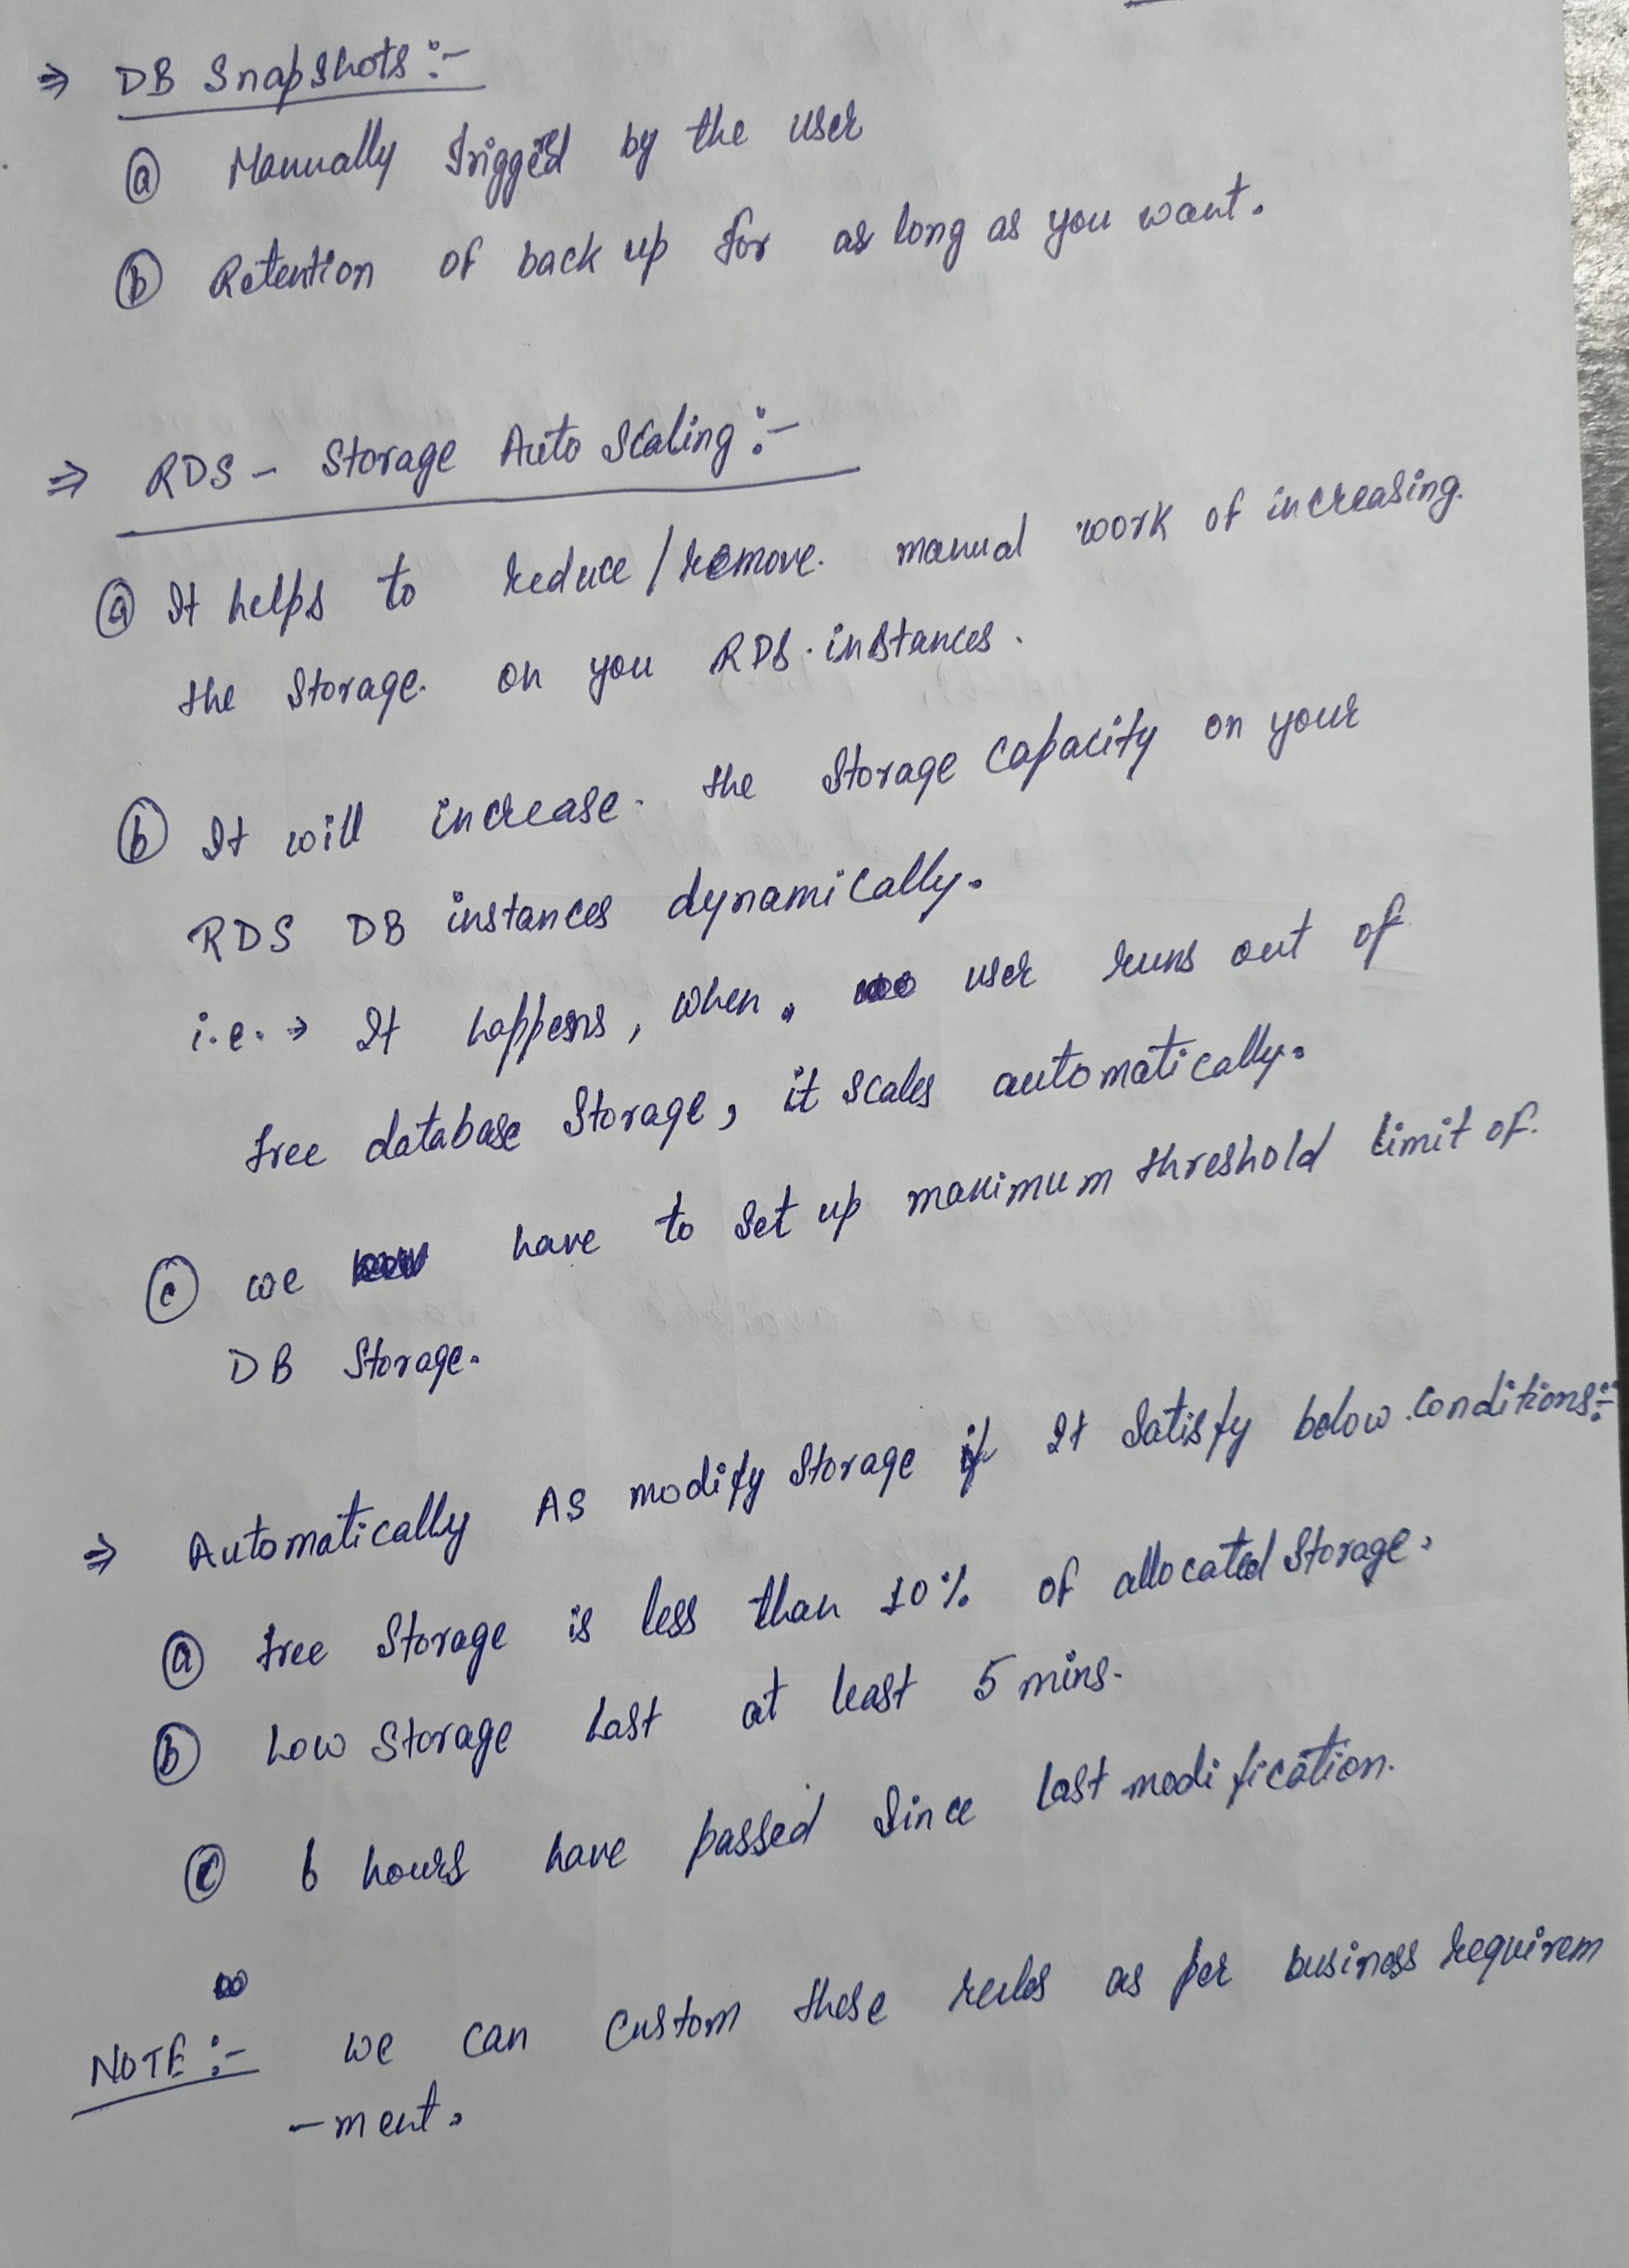 ⇒ DB Snapshots :-
ⓐ Manually Triggered by the user
ⓑ Retention of back up for as long as you want.
⇒ RDS - Storage Auto Scaling :-
ⓐ It helps to reduce / remove. manual work of increasing.
the storage. on you RDS. instances.
ⓑ It will increase. the storage capacity on your
RDS DB instances dynamically.
i.e. → It happens, when, user runs out of
free database storage, it scales automatically.
ⓒ we have to set up maximum threshold limit of.
DB storage.
⇒ Automatically AS modify storage if It satisfy below conditions:-
ⓐ free storage is less than 10% of allocated storage.
ⓑ Low storage last at least 5 mins.
ⓒ 6 hours have passed since last modification.
NOTE :- we can custom these rules as per business requirem
-ment.